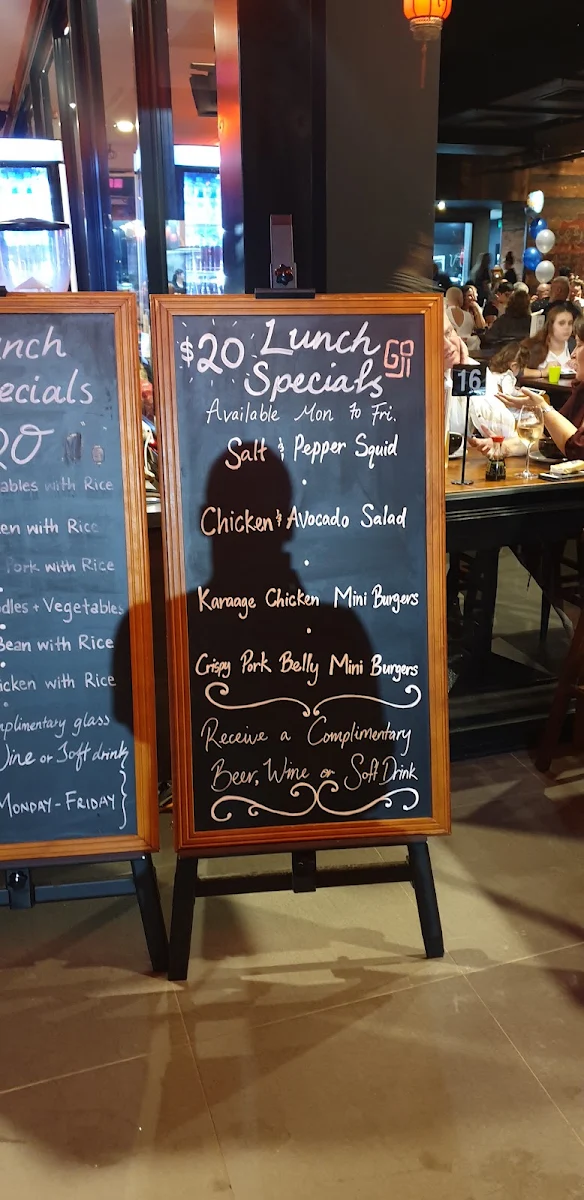 nch
ecials
20
ables with Rice
en with Rice
Pork with Rice
dles + Vegetables
Bean with Rice
icken with Rice
mplimentary glass
Wine or Soft drink
MONDAY - FRIDAY
$20 Lunch
Specials
GOJI
Available Mon to Fri.
Salt & Pepper Squid
Chicken & Avocado Salad
Karaage Chicken Mini Burgers
Crispy Pork Belly Mini Burgers
Receive a Complimentary
Beer, Wine or Soft Drink
16